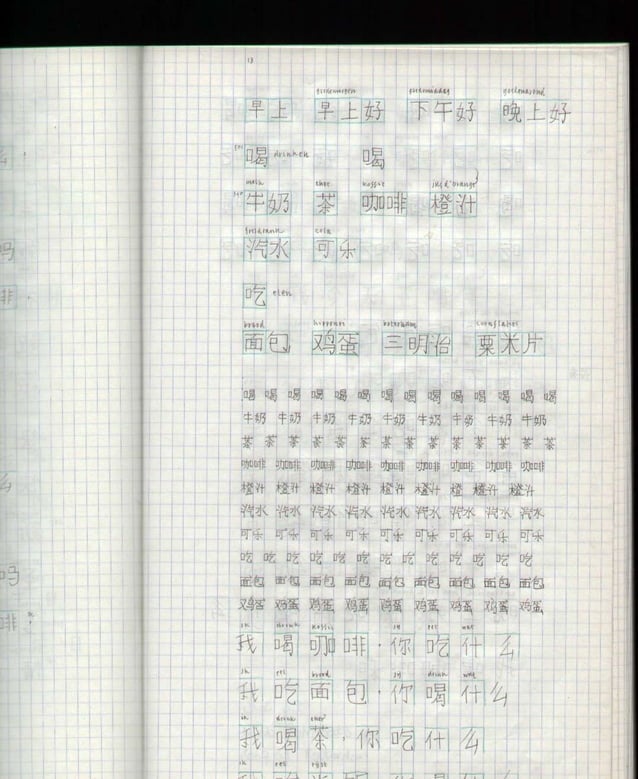 13
goedemorgen goedemiddag goedenavond
早上 早上好 下午好 晚上好
喝 drinken 喝
melk thee koffie jus d'orange
牛奶 茶 咖啡 橙汁
frisdrank cola
汽水 可乐
吃 eten
brood boterham cornflakes
面包 鸡蛋 三明治 粟米片
喝 喝 喝 喝 喝 喝 喝 喝 喝 喝 喝 喝 喝 喝
牛奶 牛奶 牛奶 牛奶 牛奶 牛奶 牛奶 牛奶 牛奶
茶 茶 茶 茶 茶 茶 茶 茶 茶 茶 茶 茶 茶 茶
咖啡 咖啡 咖啡 咖啡 咖啡 咖啡 咖啡 咖啡 咖啡
橙汁 橙汁 橙汁 橙汁 橙汁 橙汁 橙 橙汁 橙汁
汽水 汽水 汽水 汽水 汽水 汽水 汽水 汽水 汽水
可乐 可乐 可乐 可乐 可乐 可乐 可乐 可乐 可乐
吃 吃 吃 吃 吃 吃 吃 吃 吃 吃 吃 吃 吃
面包 面包 面包 面包 面包 面包 面包 面包 面包
鸡蛋 鸡蛋 鸡蛋 鸡蛋 鸡蛋 鸡蛋 鸡蛋 鸡蛋 鸡蛋
ik drink koffie jij eet wat
我喝咖啡.你吃什么
ik eet brood jij drink wat
我吃面包.你喝什么
ik drink thee
我喝茶,你吃什么
ik eet rijst